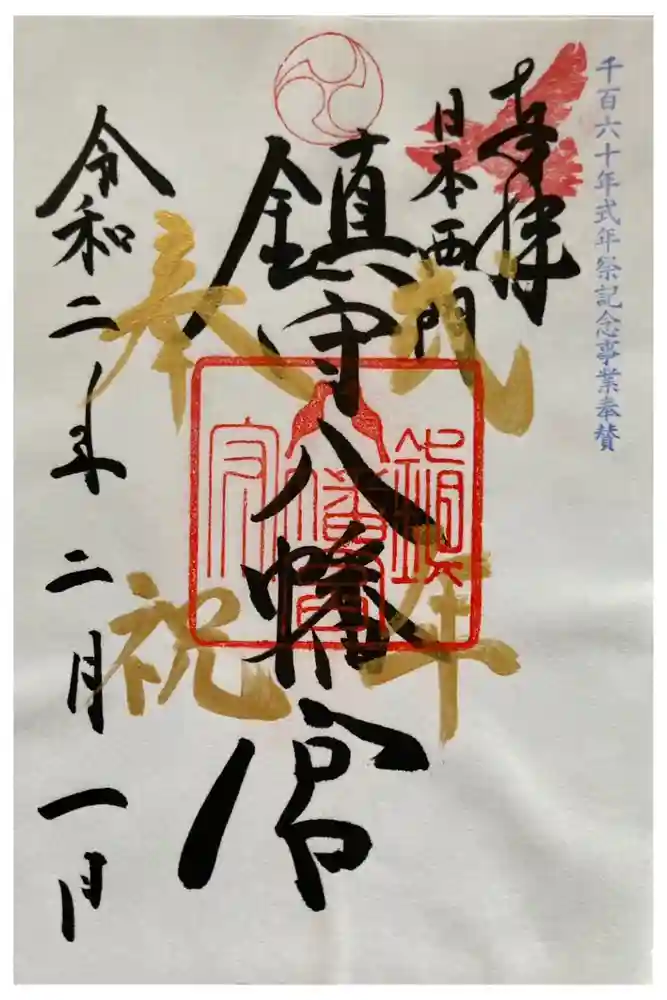 千百六十年式年祭記念事業奉賛
奉拝
日本西門
鎮守八幡宮
式年
奉祝
令和二年二月一日